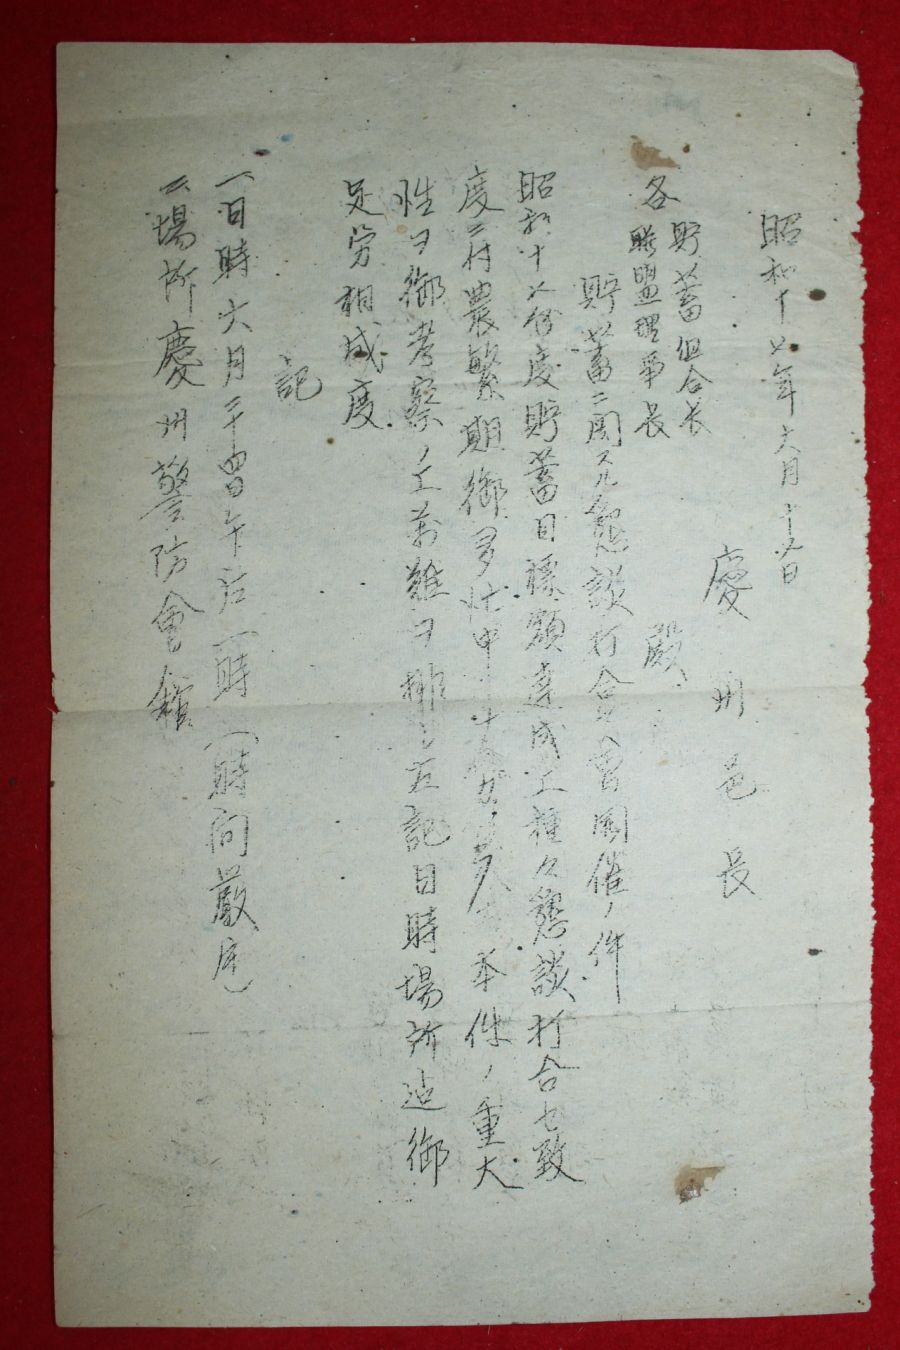 昭和十七年六月十九日
慶州邑長
各貯蓄組合長
聯盟理事長
殿
貯蓄ニ関スル懇談打合會開催ノ件
昭和十七年度貯蓄目標額達成上種々懇談打合セ致
度ニ付農繁期御多忙中 本件ノ重大
性ヲ御考察ノ上萬難ヲ排シ左記日時場所迠御
足労相成度
記
一、日時六月二十四日午后一時(時間厳守)
二、場所慶州警防會館